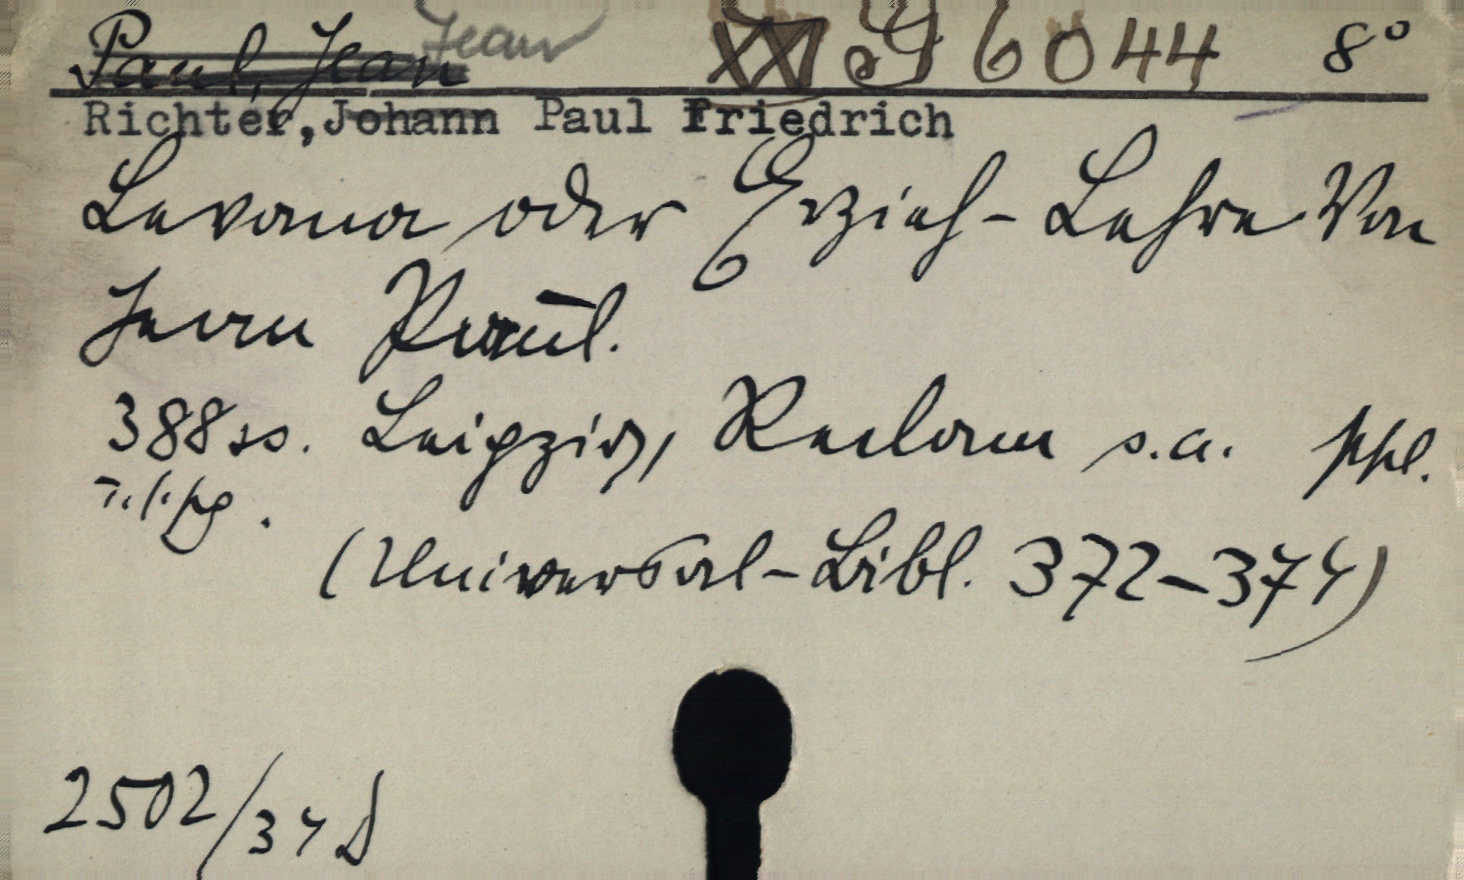 Paul, Jean Jean XXI G 6044 8°
Richter, Johann Paul Friedrich
Levana oder Erzieh-Lehre Von
Jean Paul.
388 ss. Leipzig, Reclam s.a. ppl.
(Universal-Bibl. 372-374)
2502/34